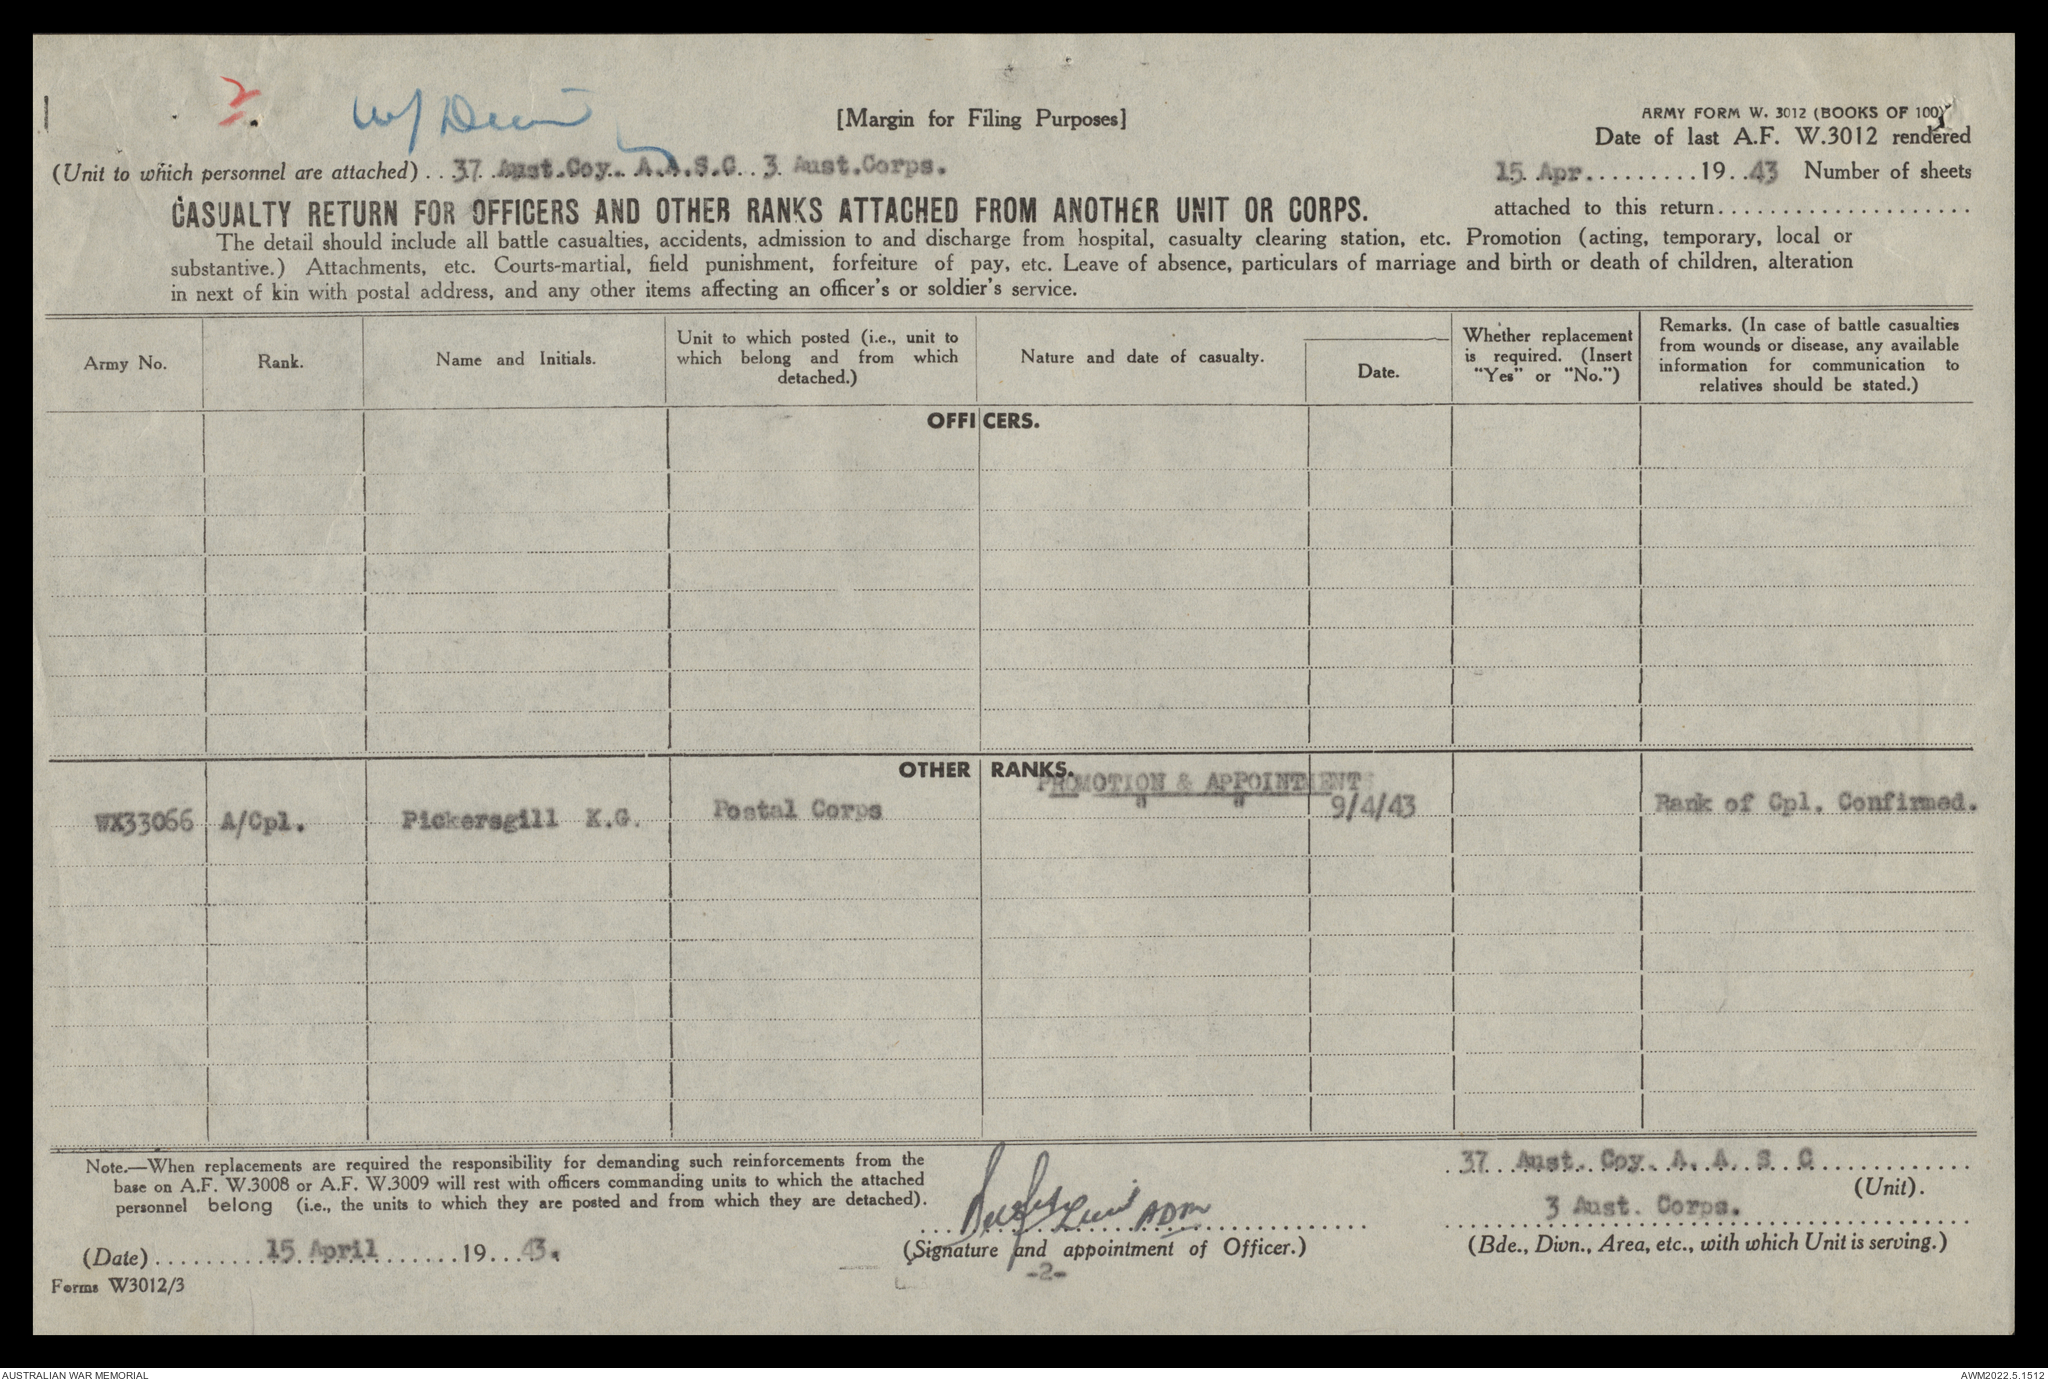 2
[Margin for Filing Purposes]
ARMY FORM W. 3012 (BOOKS OF 100)
Date of last A.F. W.3012 rendered
(Unit to which personnel are attached) . . 37 Aust.Coy. A.A.S.C. 3 Aust.Corps.
15 Apr.........19..43 Number of sheets
attached to this return....................
CASUALTY RETURN FOR OFFICERS AND OTHER RANKS ATTACHED FROM ANOTHER UNIT OR CORPS.
The detail should include all battle casualties, accidents, admission to and discharge from hospital, casualty clearing station, etc. Promotion (acting, temporary, local or
substantive.) Attachments, etc. Courts-martial, field punishment, forfeiture of pay, etc. Leave of absence, particulars of marriage and birth or death of children, alteration
in next of kin with postal address, and any other items affecting an officer's or soldier's service.
Army No.
Rank.
Name and Initials.
Unit to which posted (i.e., unit to
which belong and from which
detached.)
Nature and date of casualty.
Date.
Whether replacement
is required. (Insert
"Yes" or "No.")
Remarks. (In case of battle casualties
from wounds or disease, any available
information for communication to
relatives should be stated.)
OFFICERS.
OTHER RANKS.
PROMOTION & APPOINTMENTS
WX33066 A/Cpl. Pickersgill K.G. Postal Corps " " 9/4/43 Rank of Cpl. Confirmed.
Note.—When replacements are required the responsibility for demanding such reinforcements from the
base on A.F. W.3008 or A.F. W.3009 will rest with officers commanding units to which the attached
personnel belong (i.e., the units to which they are posted and from which they are detached).
ADM
(Signature and appointment of Officer.)
37 Aust. Coy. A. A. S. C
(Unit).
3 Aust. Corps.
(Bde., Divn., Area, etc., with which Unit is serving.)
(Date) 15 April 19 43.
-2-
Forms W3012/3
AUSTRALIAN WAR MEMORIAL
AWM2022.5.1512